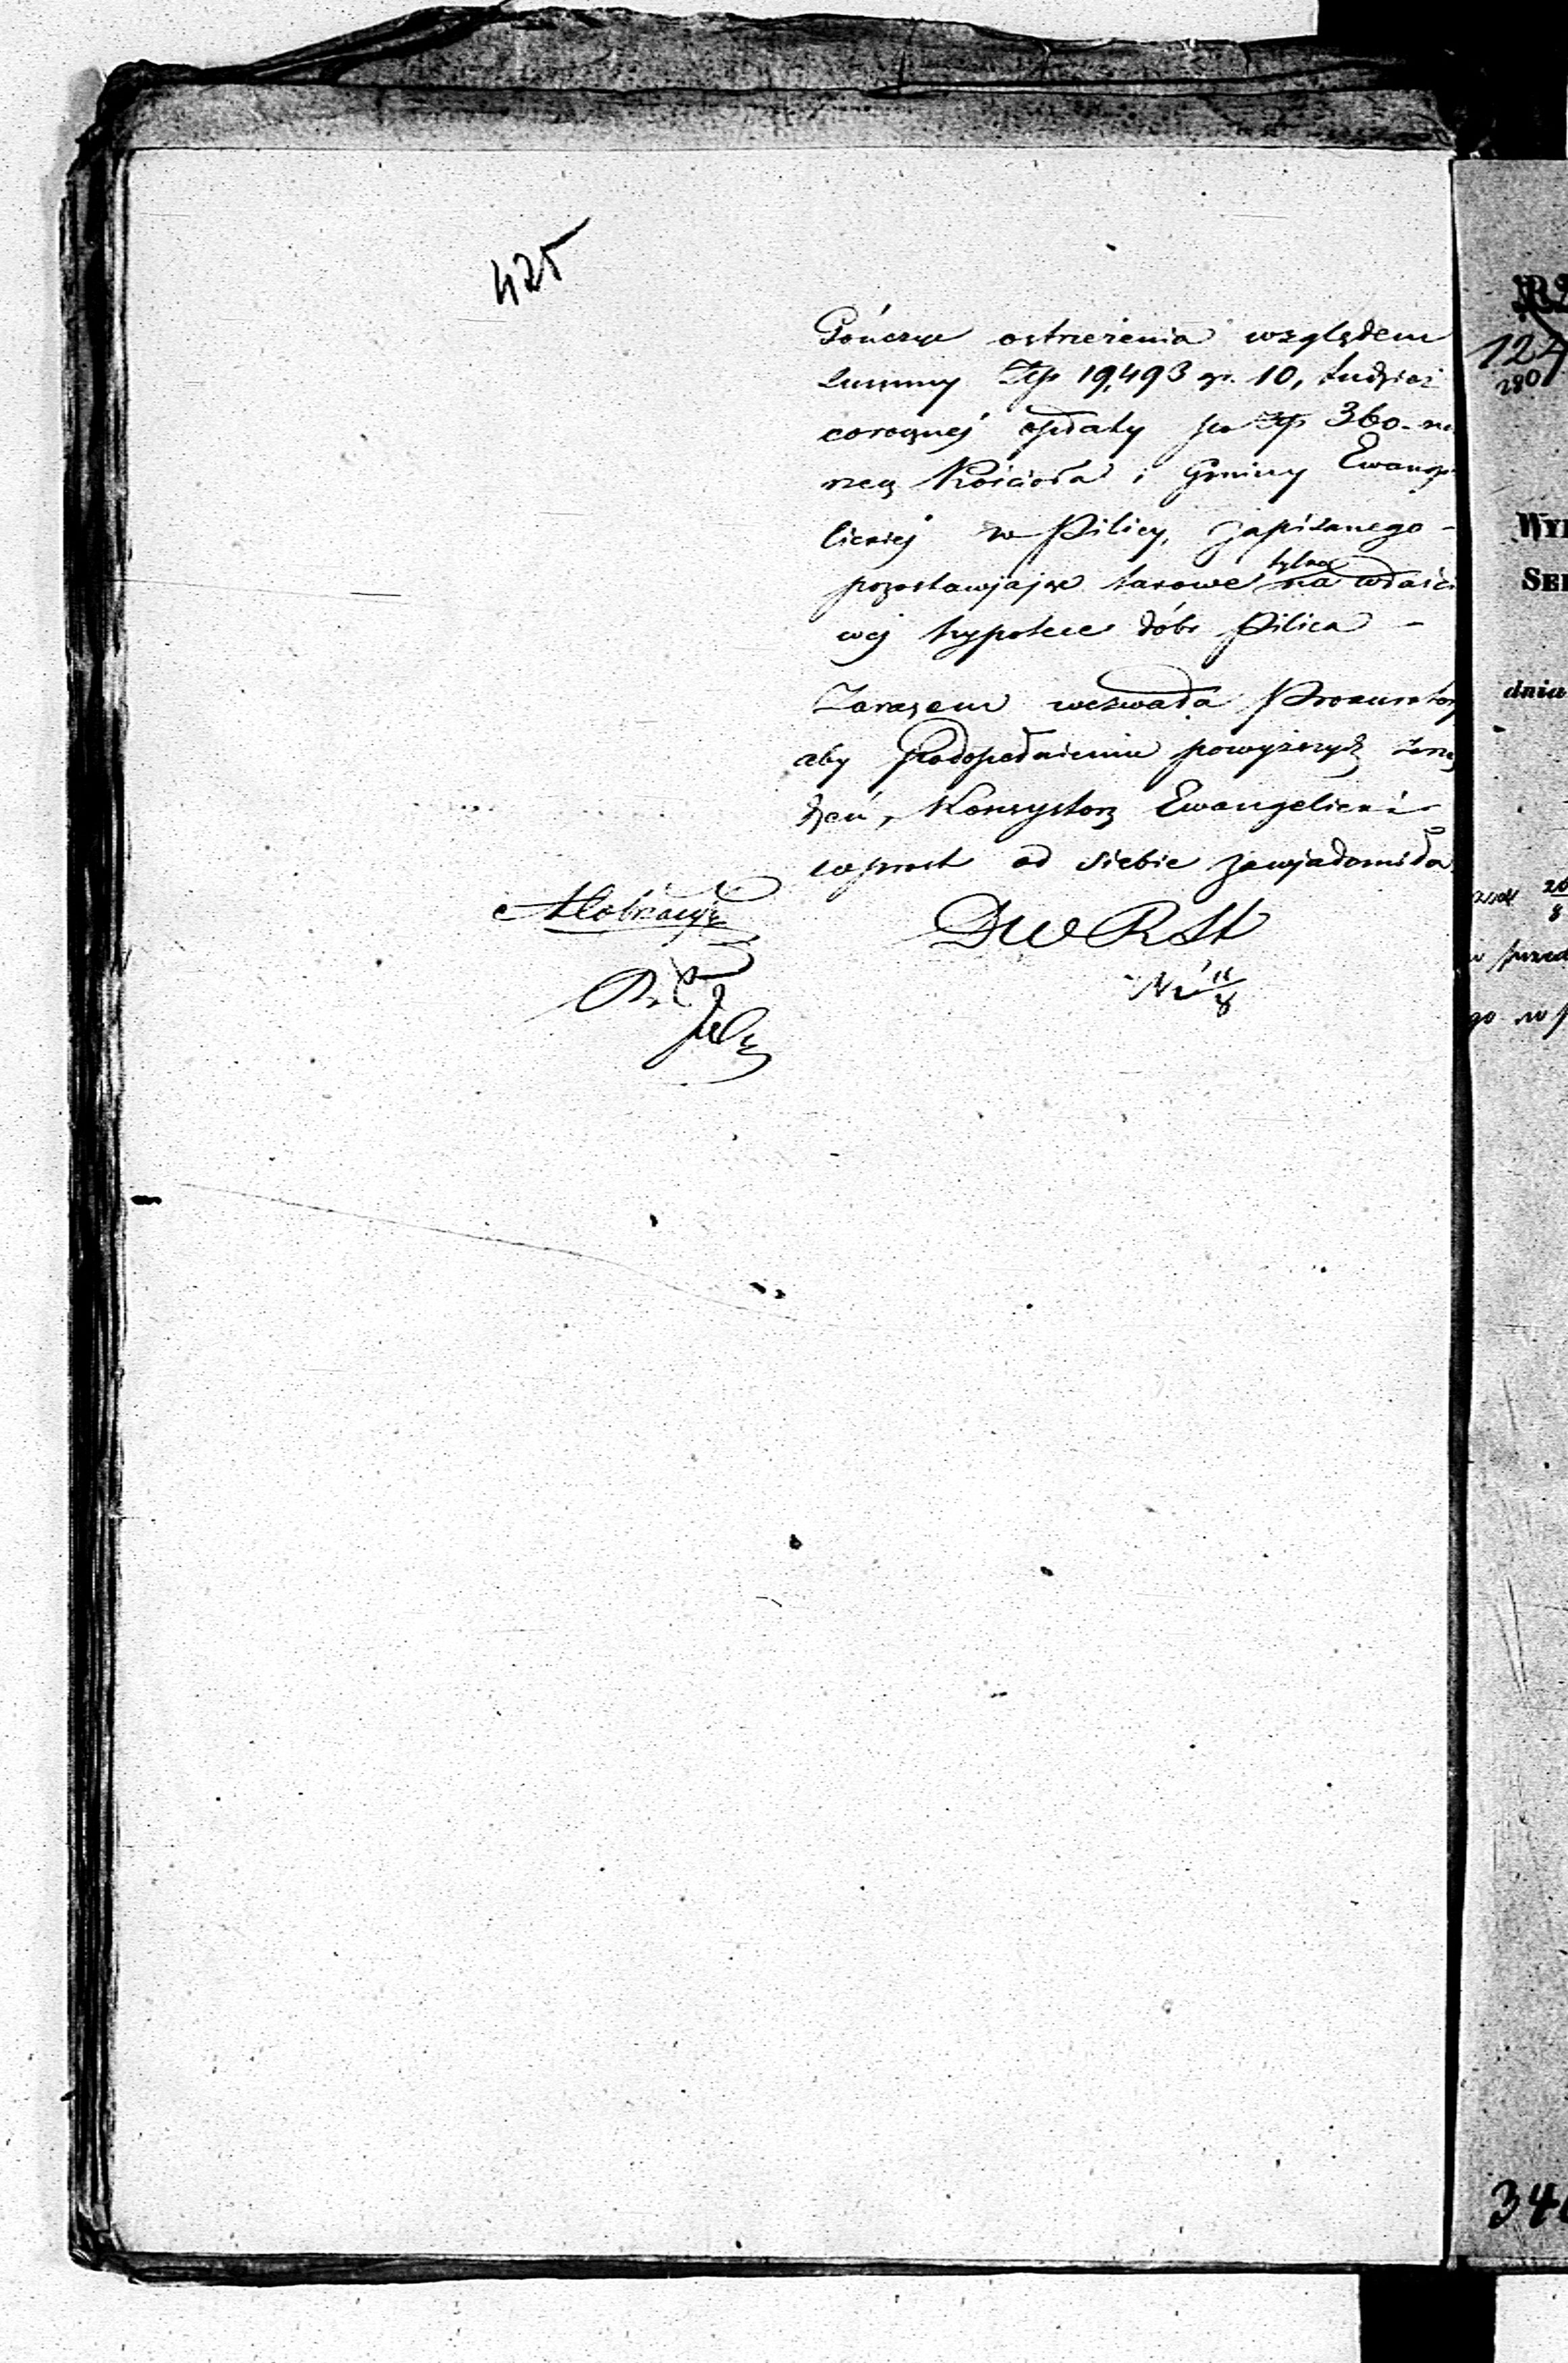 425
Pończe ostrzeżenia względem
Summy Złp 19,493 gr. 10, tudzież
corocznej opłaty po Złp 360. na
rzecz Kościoła i Gminy Ewange
lickiej w Pilicy, zapisanego -
pozostawiając takowe tylko na właści
wej hypotece dóbr Pilica -
Zarazem wezwała Prokurator
aby po dopełnieniu powyższych
dzeń, Konsystorz Ewangelicki
wprost od siebie zawiadomiła
DWRSt
11/8
124
280
WY
SE
dnia
346